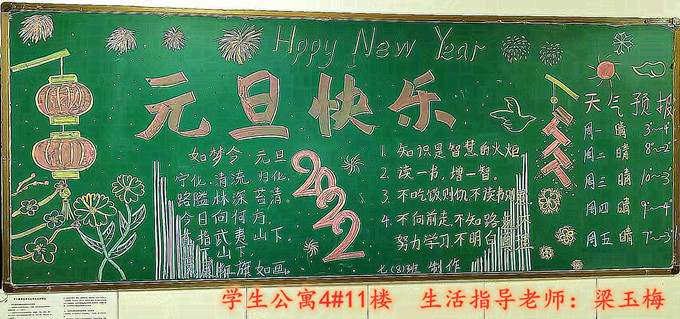 Hppy New Year
元旦快乐
如梦令 元旦
宁化、清流、归化,
路隘林深苔滑。
今日向何方,
指武夷山下。
山下
旗如画。
2022
1. 知识是智慧的火炬
2. 读一书,增一智。
3. 不吃饭则饥不读书则
4. 不向前走,不知路
努力学习,不明白
七(8)班 制作
天气预报
周一 晴 3~4
周二 晴 8~2
周三 晴 10~3
周四 晴 9~4
周五 晴 7~3
学生公寓4#11楼 生活指导老师:梁玉梅